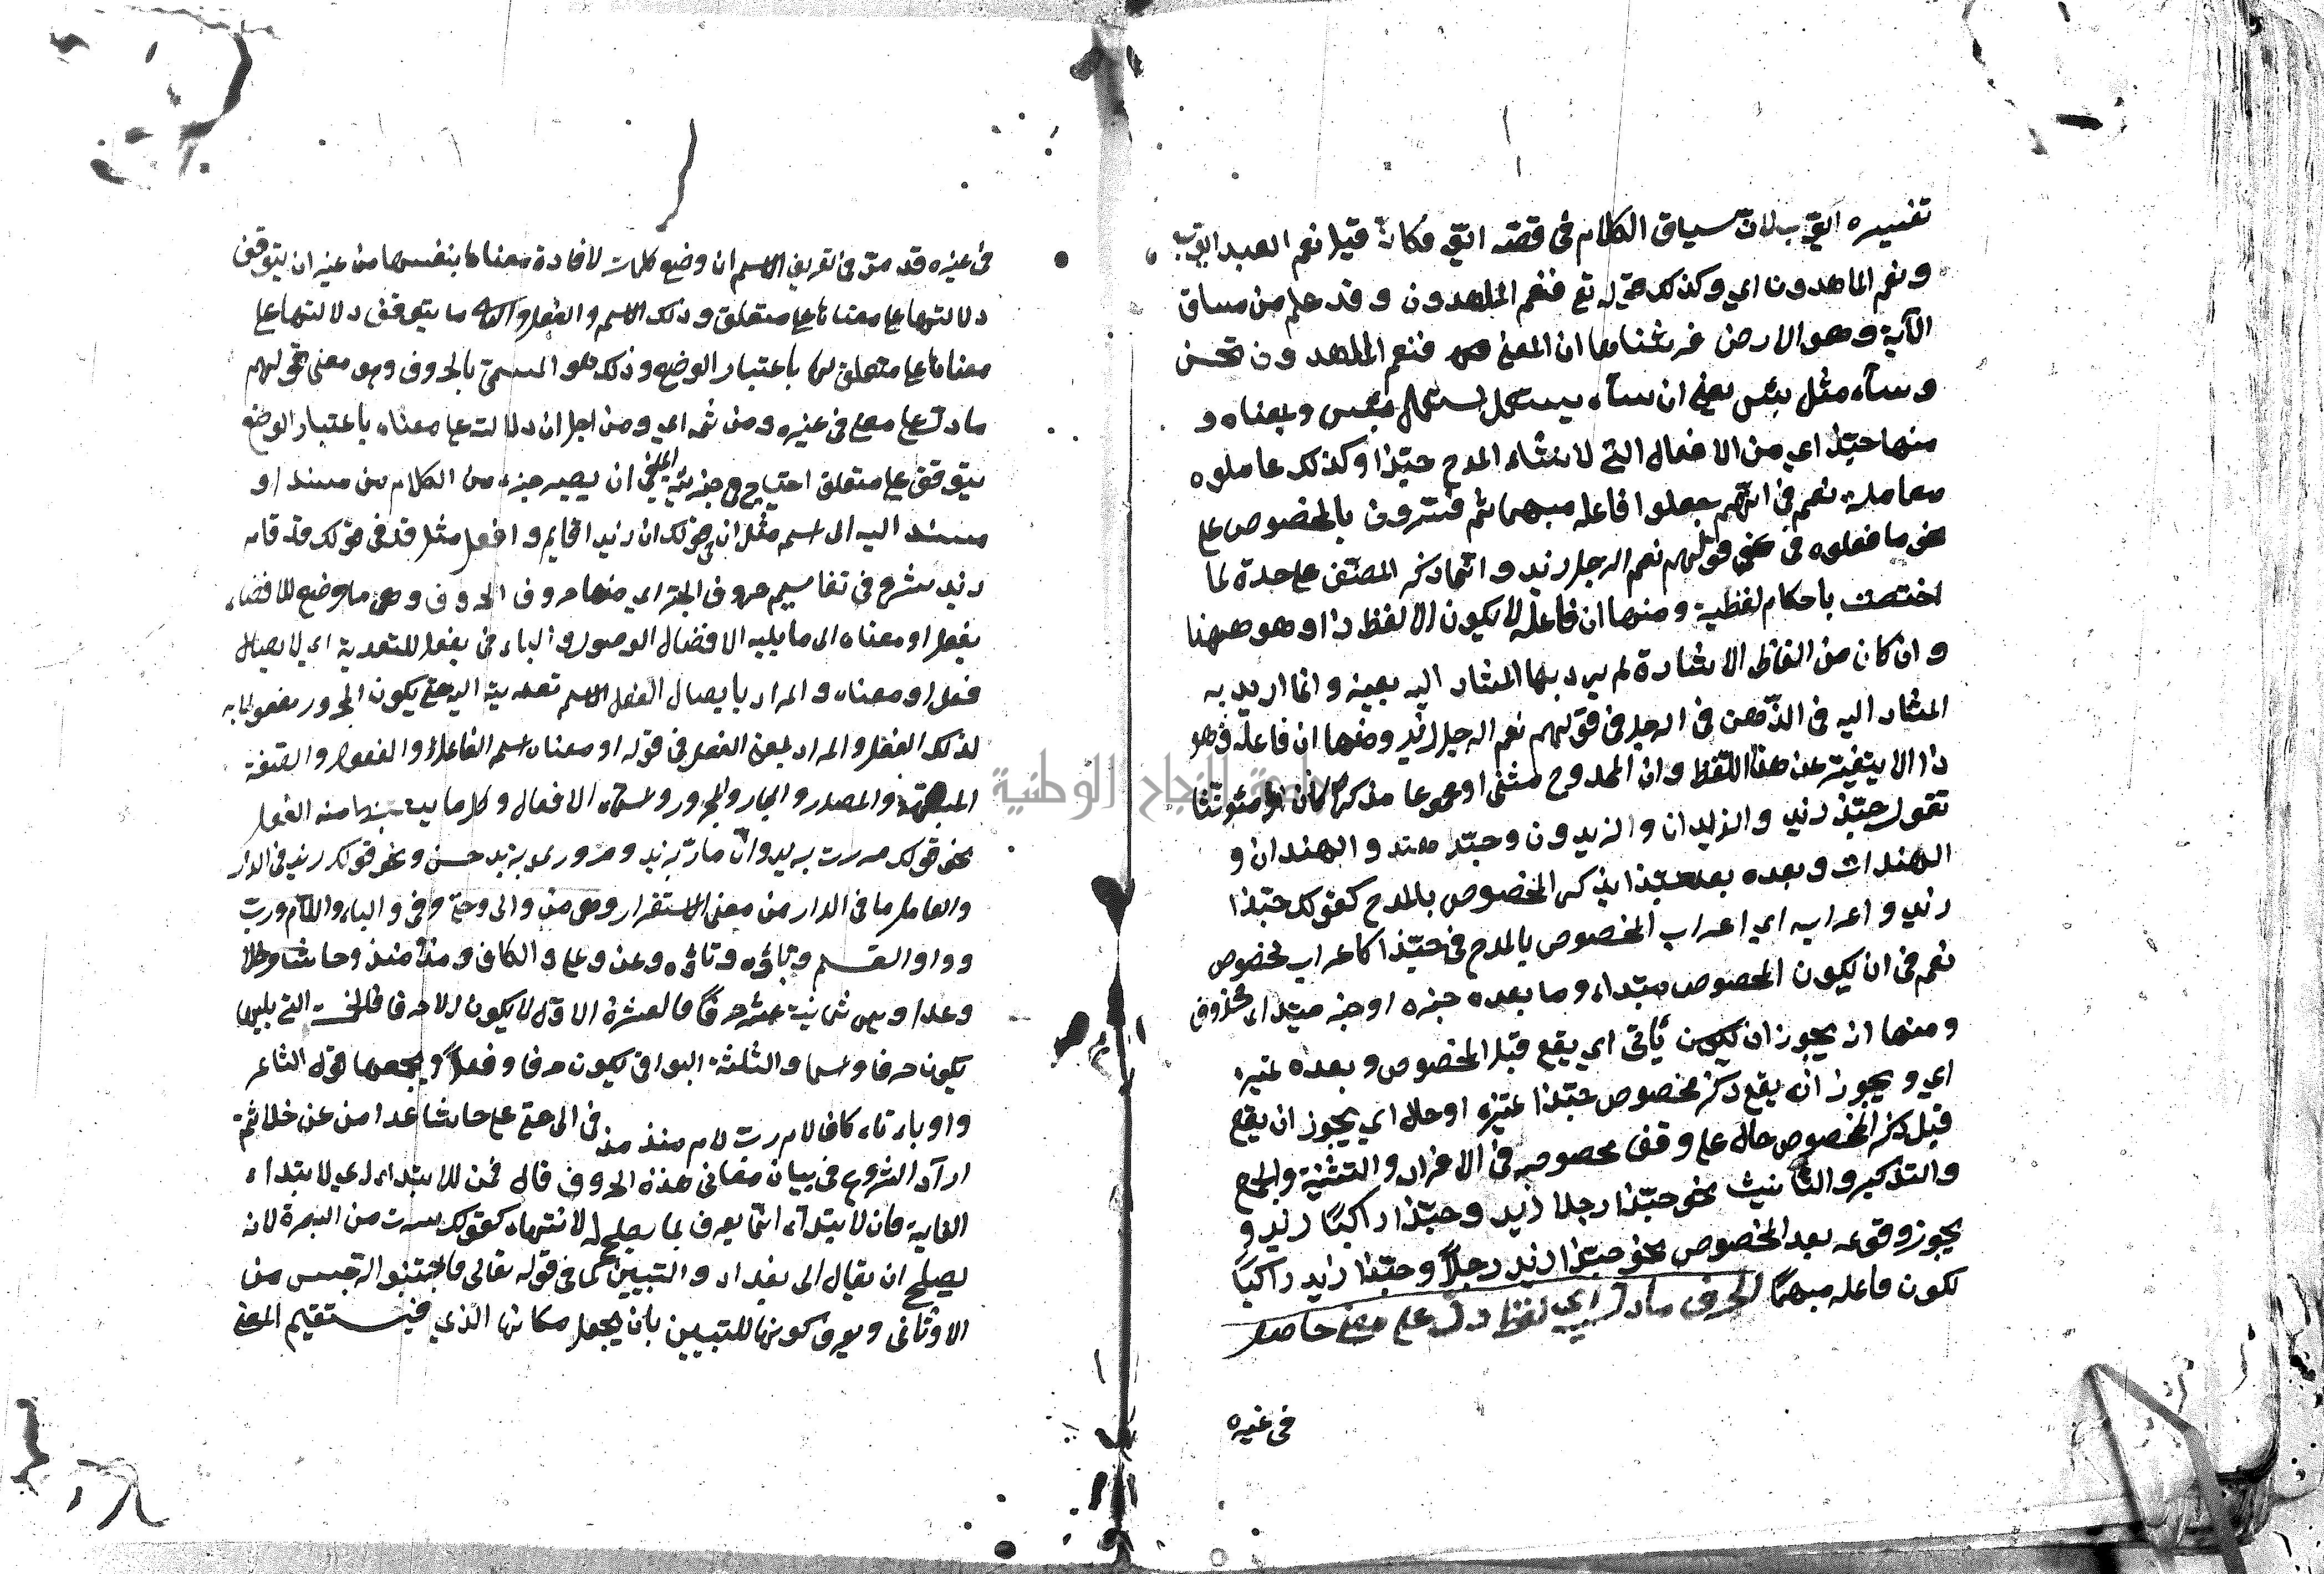 تفسيره ايوب لان سياق الكلام في قصة ايوب فكانه قيل نعم العبد ايوب
ونعم الماهدون اي وكذلك قوله تع فنعم الماهدون وقد علم من مساق
الآية وهو الارض فرشناها ان المعنى فنعم الماهدون نحن
وسآء مثل بئس يعني ان سآء يستعمل استعمال بئس وبمعناه و
منها حبّذا اي من الافعال التي لانشاء المدح حبّذا وكذلك عاملوه
معاملة نعم في انّهم جعلوا فاعله مبهما ثم فسّروه بالمخصوص على
نحو ما فعلوه في نحو قولهم نعم الرجل زيد وانّما ذكره المصنّف على حدة لما
اختصت باحكام لفظية ومنها ان فاعله لا يكون الا لفظ ذا وهو ههنا
وان كان من الفاظ الاشارة لم يرد بها المشار اليه بعينه وانما اريد به
المشار اليه في الذّهن في الرجل في قولهم نعم الرجل زيد ومنها ان فاعله وهو
ذا لا يتغيّر عن هذا اللّفظ وان الممدوح مثنى او مجموعا مذكرا كان او مئونّثا
تقول حبّذا زيد والزيدان والزيدون وحبّذا هند والهندان و
الهندات وبعده بعد حبّذا يذكر المخصوص بالمدح كقولك حبّذا
زيد واعرابه اي اعراب المخصوص بالمدح في حبّذا كاعراب مخصوص
نعم في ان يكون المخصوص مبتداء وما بعده خبره او خبر مبتداء محذوف
ومنها انه يجوز ان يكون يأتي اي يقع قبل المخصوص وبعده تميز
اي ويجوز ان يقع ذكر مخصوص حبّذا تميّزه او حال اي يجوز ان يقع
قبل ذكر المخصوص حال على وفق مخصوصه في الافراد والتثنية والجمع
والتذكير والتأنيث نحو حبّذا رجلا زيد وحبّذا راكبًا زيد و
يجوز وقوعه بعد المخصوص نحو حبّذا زيد رجلاً وحبّذا زيد راكبًا
لكون فاعله مبهمًا الحرف ما دلّ اي لفظ دلّ على معنى حاصل
في غيره
في غيره قد مرّ في تعريف الاسم ان وضع كلمات لافادة معناها بنفسها من غير ان يتوقف
دلالتها على معناها على متعلق وذلك الاسم والفعل وا ما يتوقف دلالتها على
معناها على متعلق لها باعتبار الوضع وذلك هو المسمّى بالحروف وهو معنى قولهم
ما دلّ على معنى في غيره ومن ثمه اي ومن اجل ان دلالته على معناه باعتبار الوضع
يتوقف على متعلق احتياج في جزئيته اي في ان يصير جزء من الكلام من مسند او
مسند اليه الى اسم مثل ان في قولك ان زيدا قايم او فعل مثل قد في قولك قد قام
زيد شرع في تقاسيم حروف الجر اي منها حروف الحروف وهى ما وضع للافضاء
بفعل او معناه الى ما يليه الافضال الوصول والباء في بفعل للتعدية اي لايصال
فعل او معناه والمراد بايصال الفعل الاسم تعديته اليه حتى يكون المجرور مفعولا به
لذلك الفعل والمراد بمعنى الفعل في قوله او معناه اسم الفاعل والمفعول والصّفة
المشبّهة والمصدر والجار والمجرور واسمآء الافعال وكل ما يستنبط منه الفعل
نحو قولك مررت بزيد وانا مارّ بزيد ومروري بزيد حسن ونحو قولك زيد في الدار
والعامل ما في الدار من معنى الاستقرار وهى من والى وحتّى وفي والباء واللام وربّ
وواو القسم وبائه وتائه وعن وعلى والكاف ومذ ومنذ وحاشا وخلا
وعدا وهى ثمانية عشر حرفًا فالعشرة الاول لا يكون الا حرفا فالخمسة التي يليها
يكون حرفا واسما والثلثة البواقي يكون حرفا وفعلاً ويجمعها قول الشاعر
واو باء تاء كاف لام ربّ لام منذ مذ في الى حتى على حاشا عدا من عن خلا ثم
ارآد الشروع في بيان معاني هذه الحروف فقال فمن للابتداء اي لابتداء
الغاية فان لابتدآء انّما يعرف بما يصلح له الانتهاء كقولك سرت من البصرة لانه
يصلح ان يقال الى بغداد والتبيين كما في قوله تعالى فاجتنبوا الرّجس من
الاوثانى ويعرف كونها للتبيين بان يجعل مكانها الذي فيستقيم المعنى
جامعة النجاح الوطنية